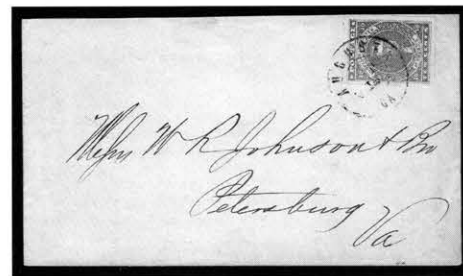 Messrs W R Johnson & Bro
Petersburg
Va